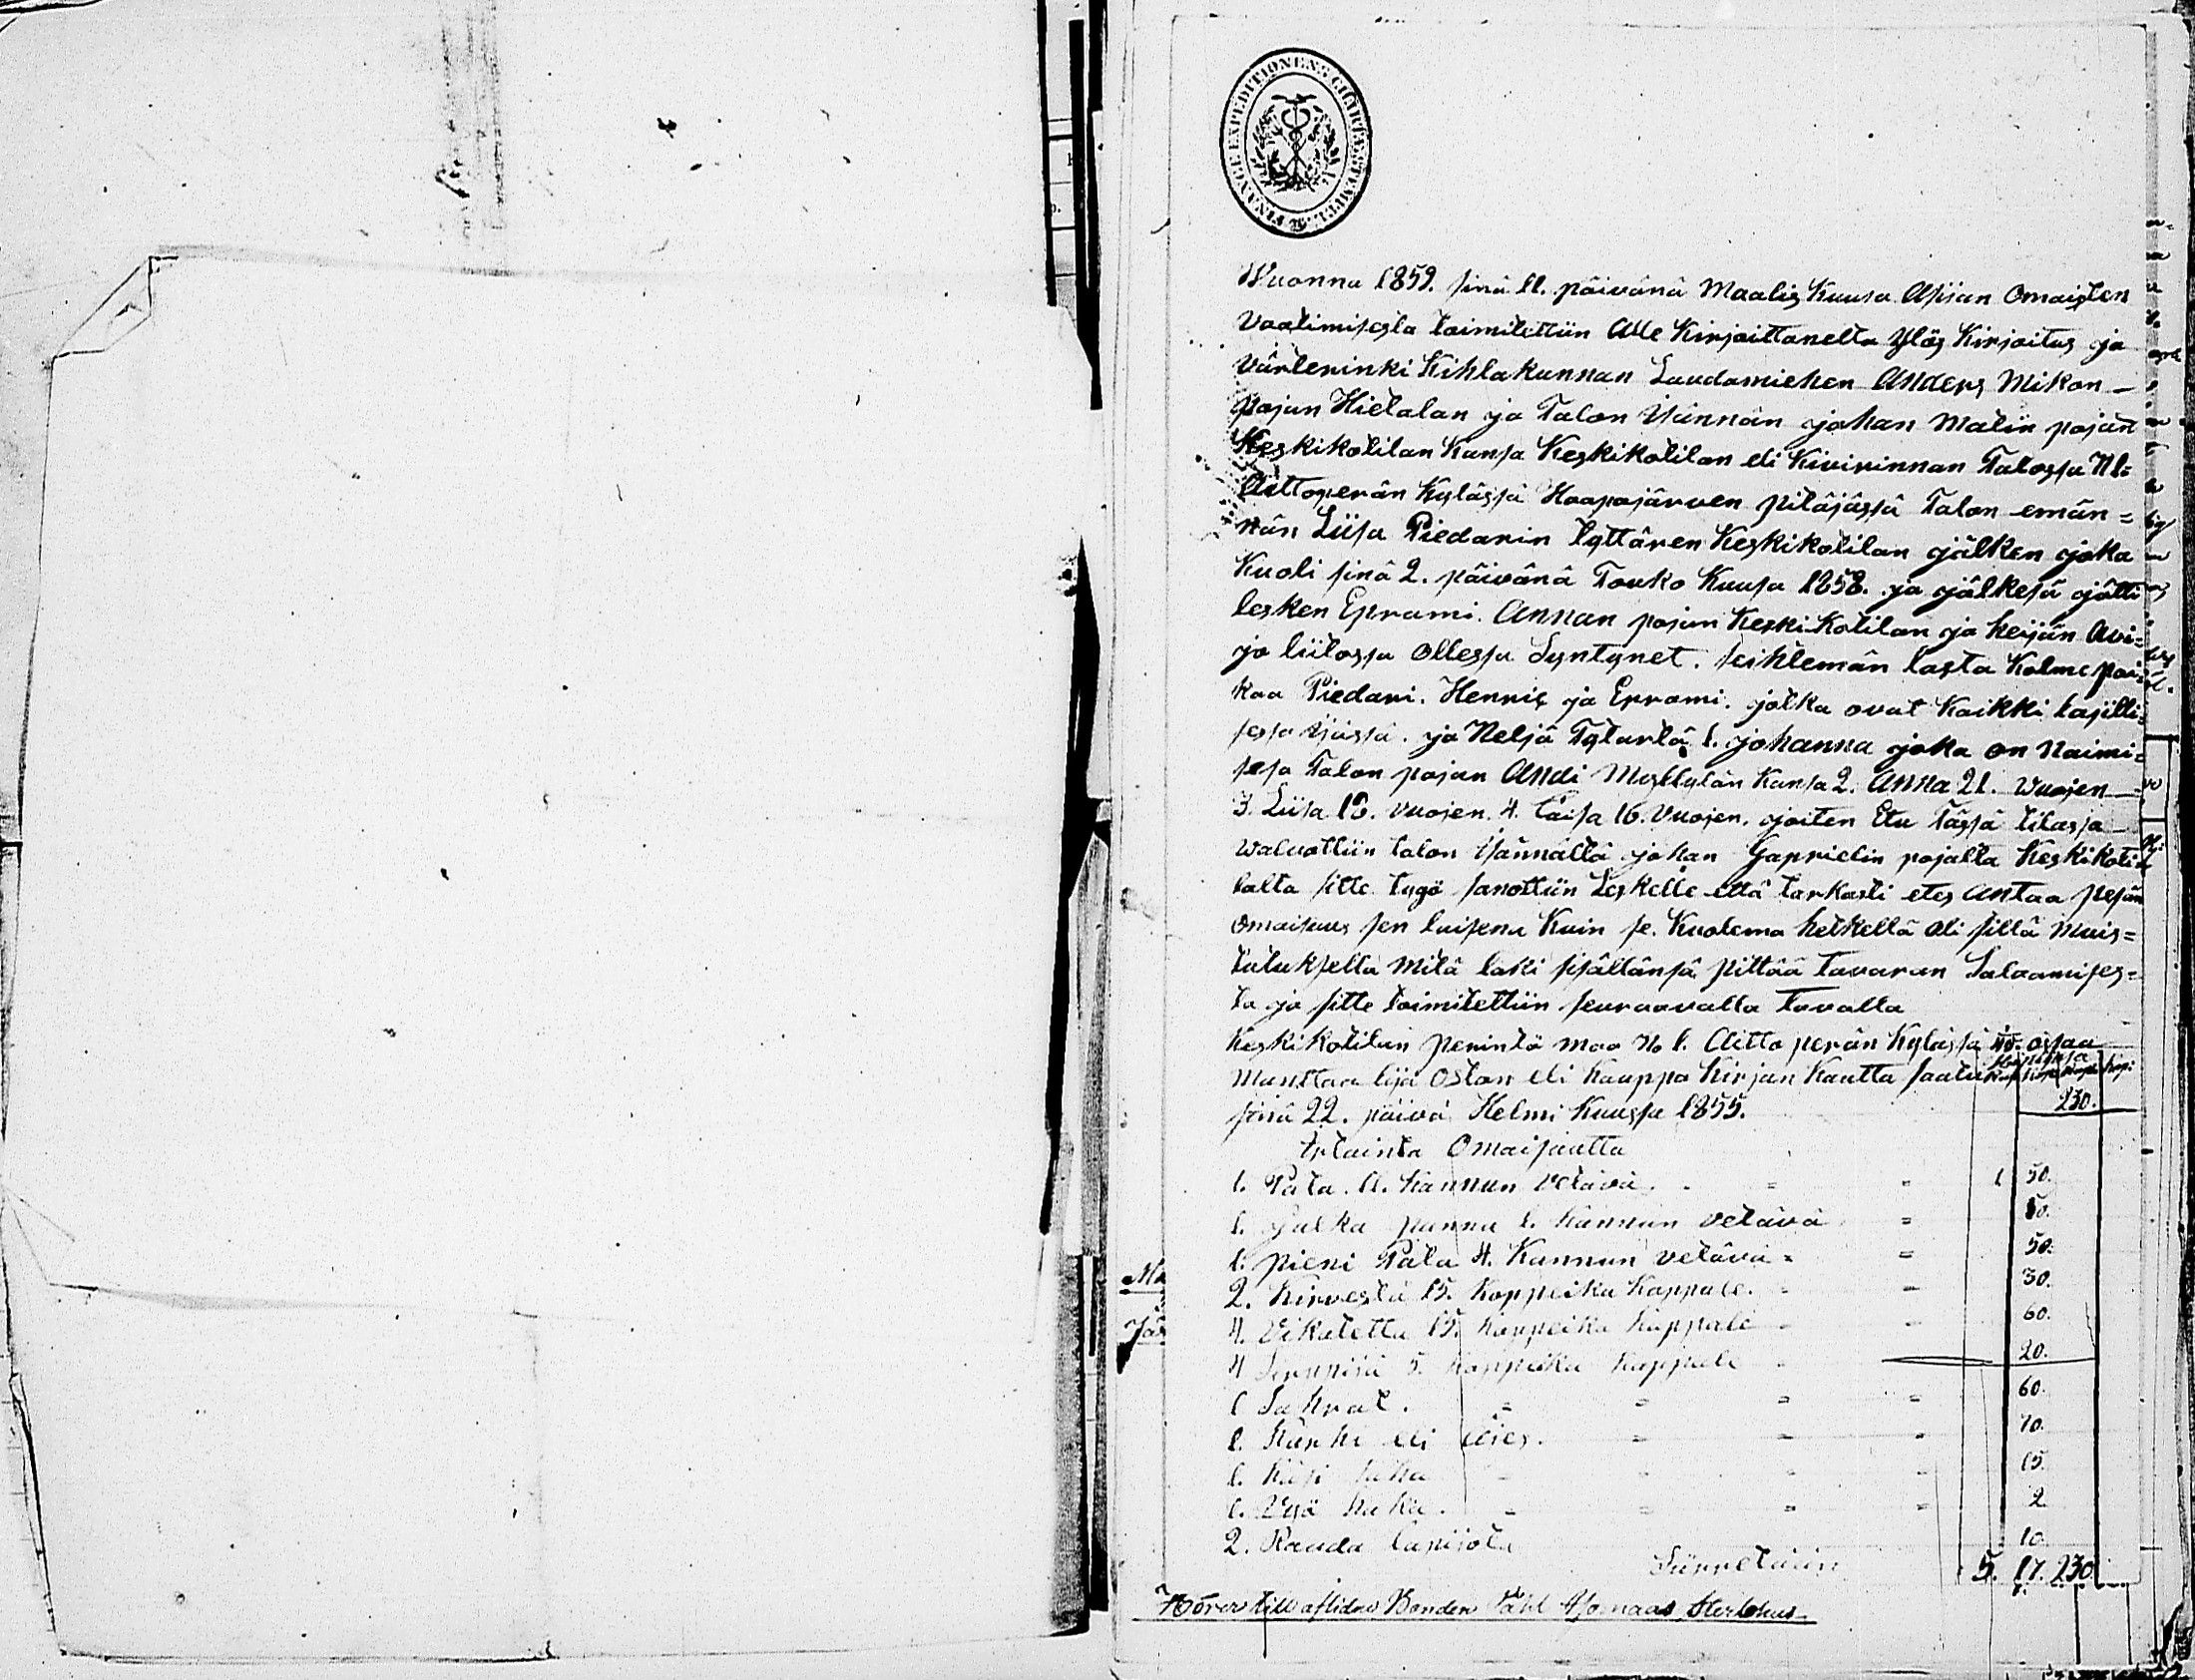 FINANCE EXPEDITIONENS CHARTÆ STEMPEL
Wuonna 1859. sinä 11. päivänä Maalis Kuusa Asiian Omaisten
Vaatimisesta toimitettiin Alle Kirjoittanelta Ylös Kirjoitus ja
Värterinki Kihlakunnan Laudamiehen Anders Mikon
pojan Hietalan ja Talon Isännän johan Matiin pojan
Keskikotilan Kansa Keskikotilan eli Kivirinnan Talossa N 1=
Aittoperän Kylässä Haapajärven pitäjässä Talon emän=
nän Liisa Piedarin tyttären Keskikotilan jälken joka
Kuoli sinä 2. päivänä Touko Kuusa 1858. ja jälkesä jätti
lesken Eprami. Annan pojan Keski Kotilan ja heijän Avi=
jo liitossa Ollessa Syntynet. seihtemän lasta Kolme poi=
kaa Piedari. Henric ja Eprami. jotka ovat Kaikki lasilli=
sessa ijässä. ja Neljä Tytartä 1. johanna joka on Naimi=
sesa Talon pojan Andi Kansa 2. Anna 21. Wuojen
3. Liisa 18. vuojen. 4. Caisa 16. Vuojen. joiten Etu Tässä tilassa
Walvottiin talon Isännältä johan Gaprielin pojalta Keskikoti=
lalta sitte tygö sanottiin Leskelle että tarkasti etes Antaa pesän
Omaisuus sen laisena Kuin se. Kuolema hetkellä oli sillä Muis=
tutuksella Mitä laki sisällänsä pittää Tavaran Salaamises=
ta ja sitte toimitettiin seuraavalla Tavalla
Keskikotilan perintö maa No 1. Aitto perän Kylässä osaa
Manttaalija Oston eli Kauppa Kirjan Kautta saatu
sinä 22. päivä Helmi Kuussa 1855. 230.
Irtainta Omaisutta
1. Pata. 11. Kannun vetävä. = = 1 50.
1. jalka panna 1. Kannun vetävä = 50.
1. pieni Pata 4. Kannun vetävä = = 50.
2. Kirvestä 15. Koppeika Kappale. = = 30.
4. Vikatetta 15. Koppeika Kappale = = 60.
4 Sirppiä 5. Koppeika Kappale = 20.
1 Sahrat. = = = = 60.
1. eli Äies. = = = 70.
1. Käsi saha = = = = 15.
1. Vyö haka. = = = = 2
2. Rauda lapijota 10.
Siirretään 5. 17. 230.
Hörer till aflidne Bonden